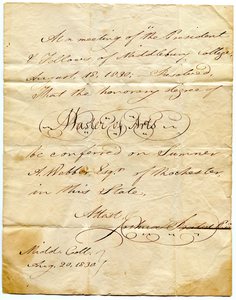 At a meeting of the President
& Fellows of Middlebury College,
August 18, 1830. Resolved,
That the honorary degree of
Master of Arts
be conferred on Sumner
A. Webber Esqr. of Rochester
in this State.
Attest,
Midd. Coll.
Aug. 20, 1830